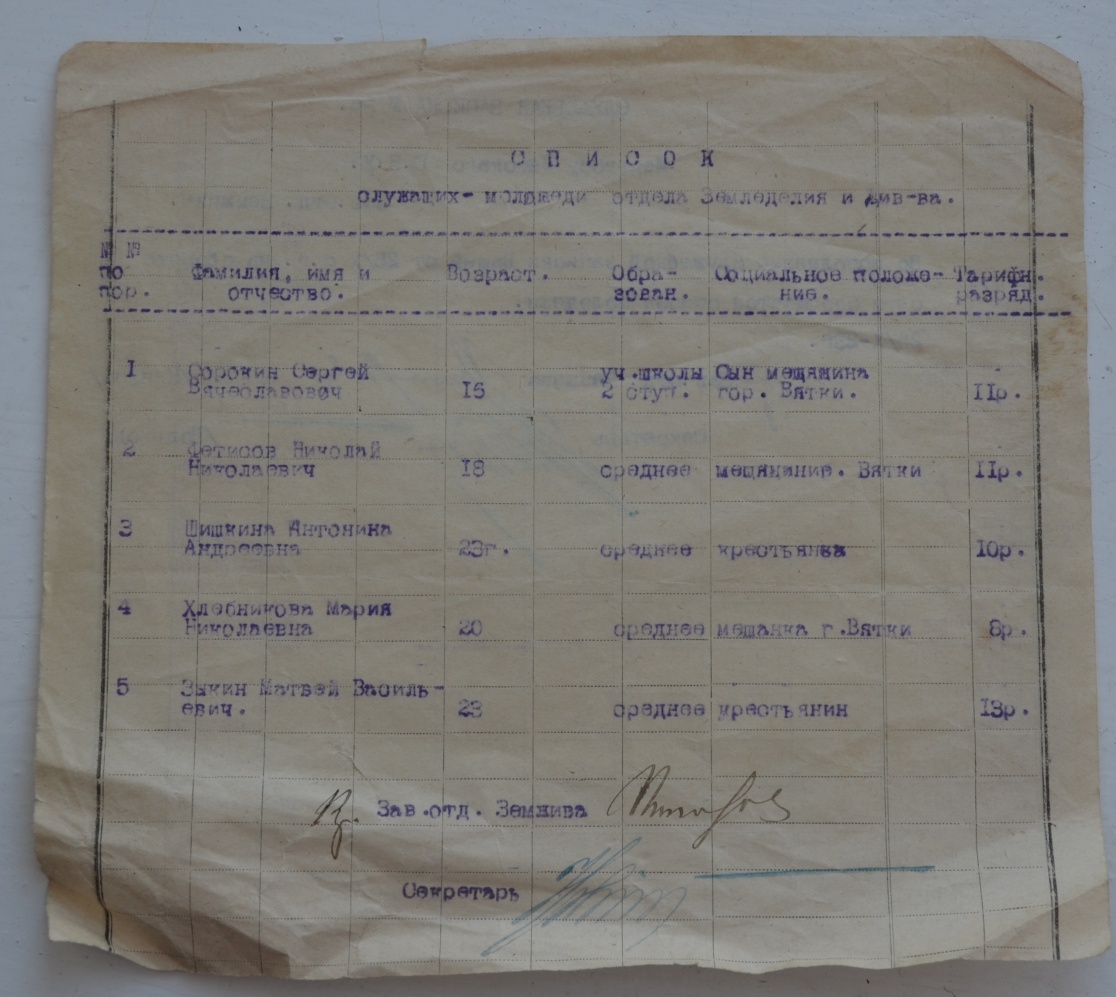 СПИСОК
служащих- молодежи отдела Земледелия и Жив-ва.
№ №
по
пор.
Фамилия, имя и
отчество.
Возраст.
Обра-
зован.
Социальное положе-
ние.
Тарифн.
разряд.
1 Сорокин Сергей уч.школы Сын мещанина
Вячеславович 16 2 ступ. гор. Вятки. 11р.
2 Фетисов Николай
Николаевич 18 среднее мещанине. Вятки 11р.
3 Шишкина Антонина
Андреевна 23г. среднее крестьянка 10р.
4 Хлебникова Мария
Николаевна 20 среднее мещанка г.Вятки 8р.
5 Зыкин Матвей Василь-
евич. 23 среднее крестьянин 13р.
Зав.отд. Земжива
Секретарь